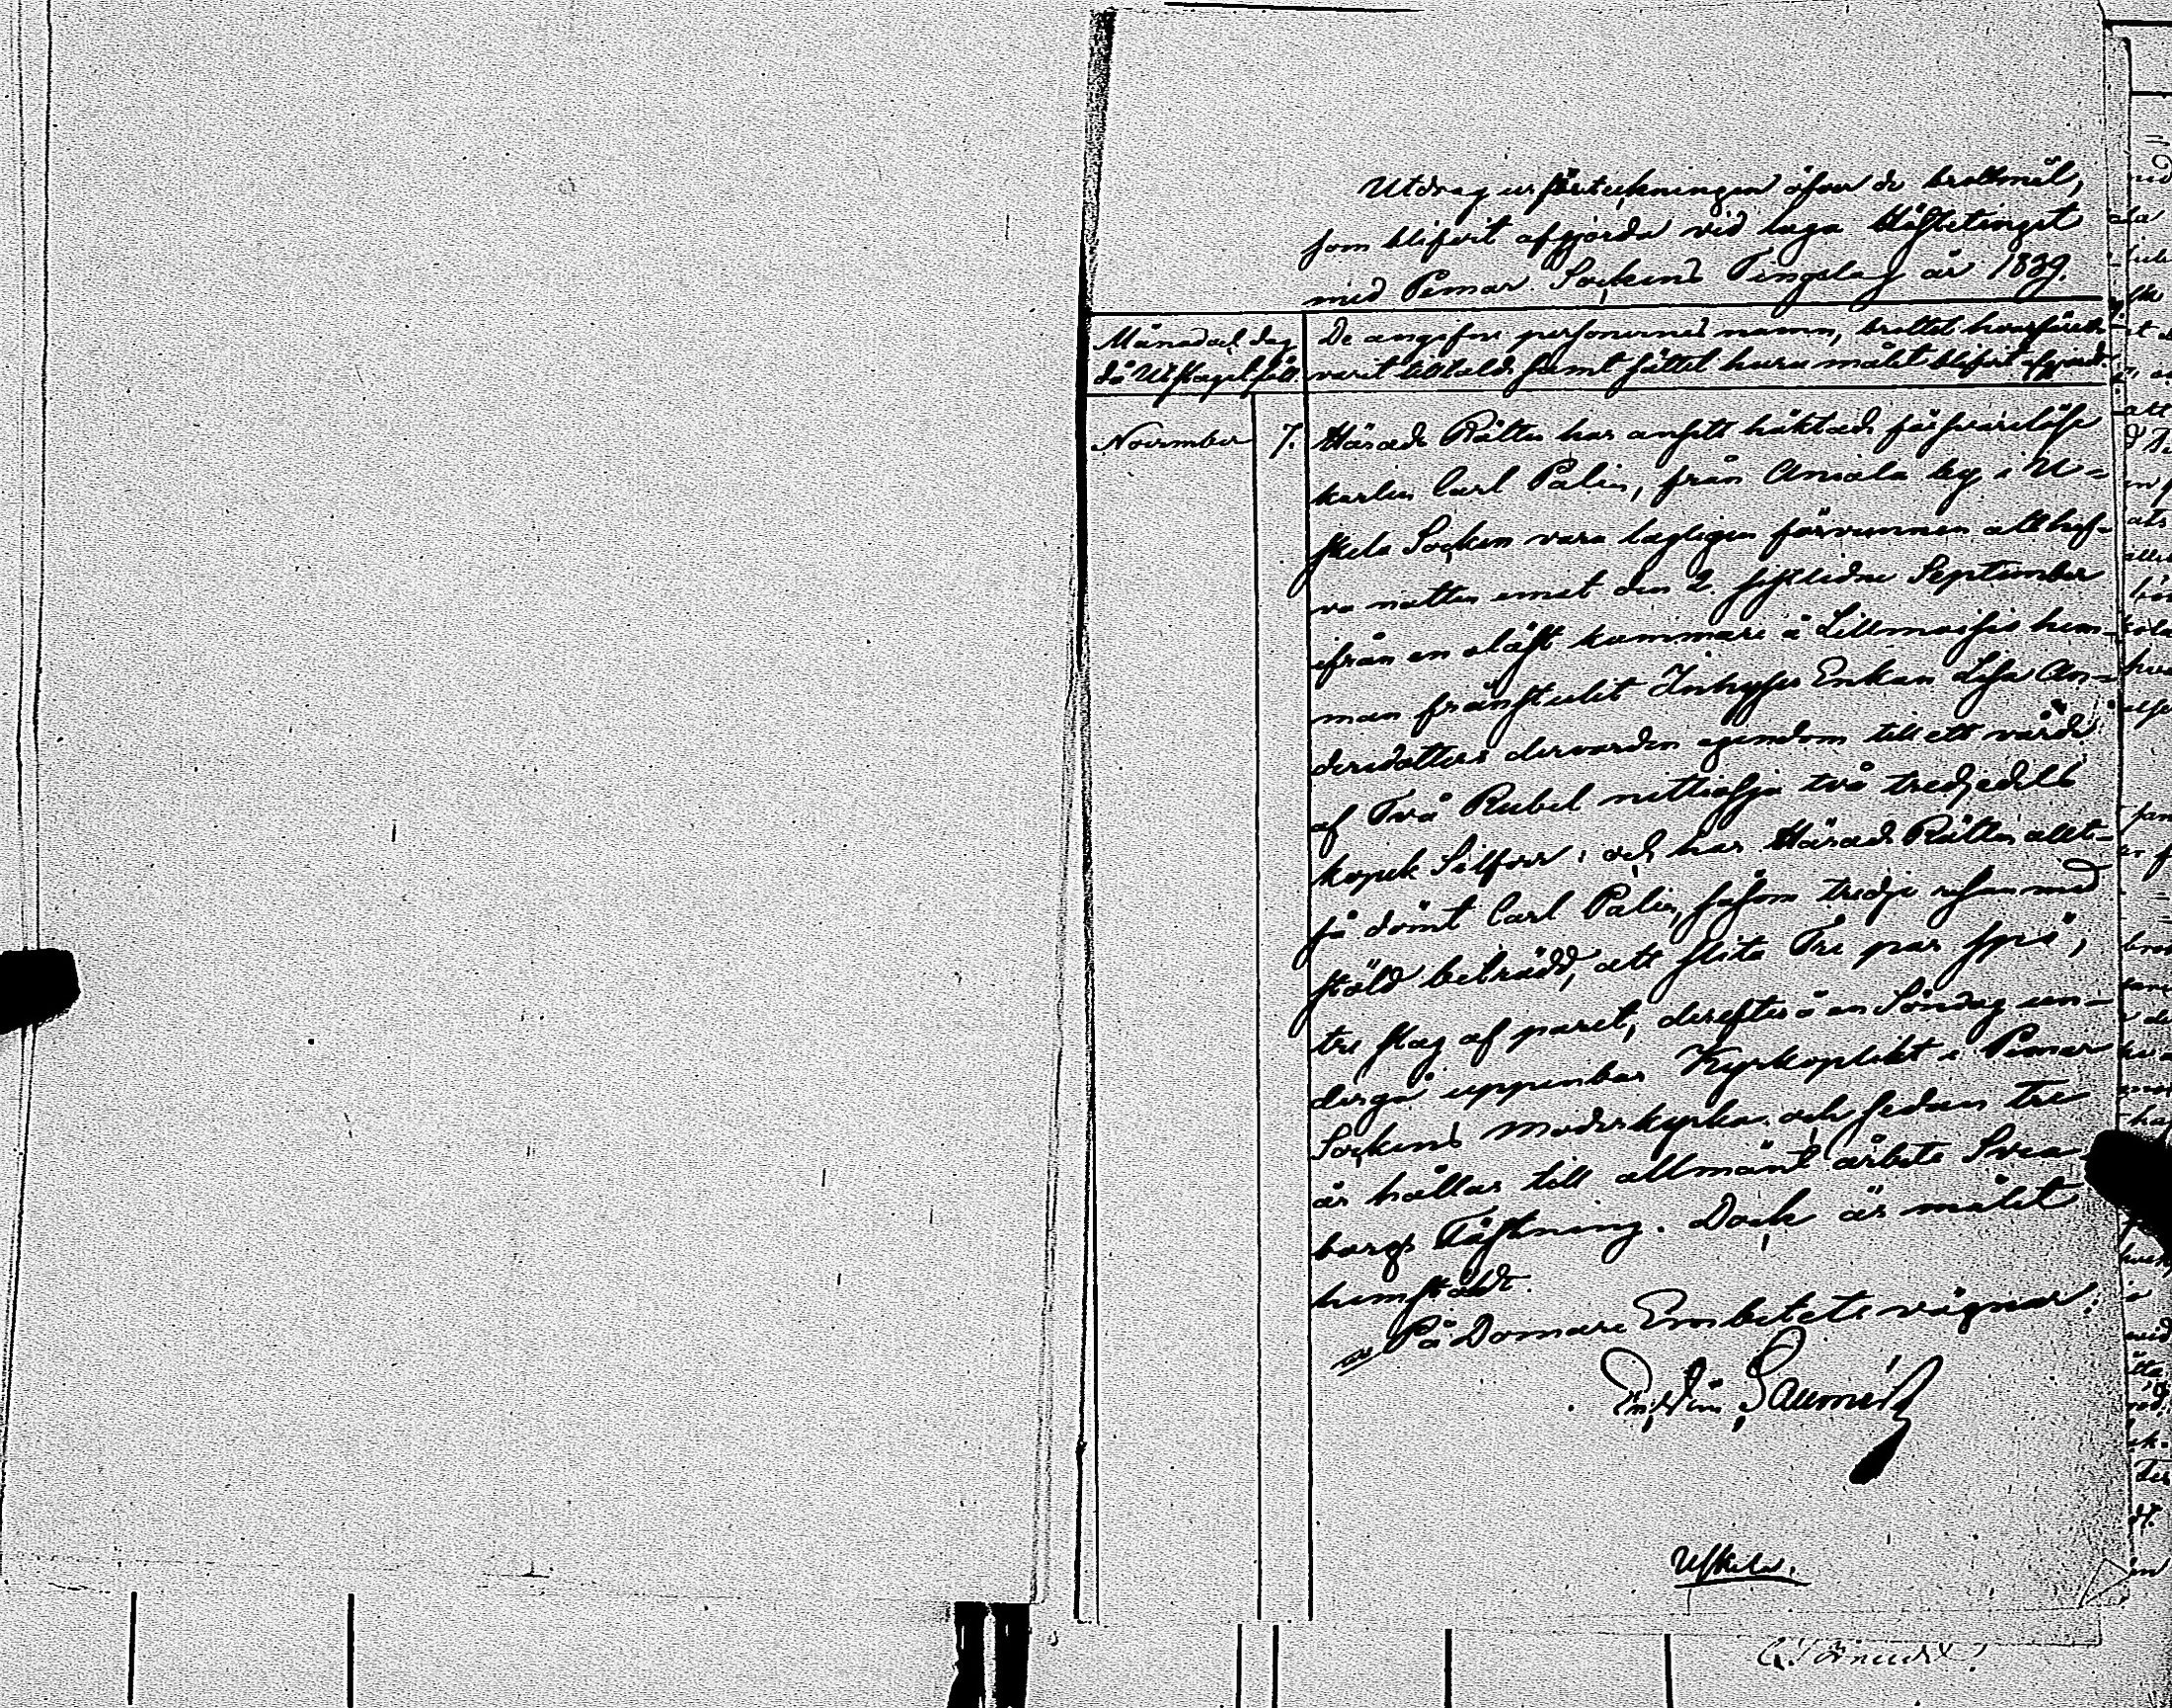 Utdrag ur förteckningen öfver de brottmål,
som blifvit afgjorda vid laga Hösttetinget
med Pemar Sockens Tingslag år 1839.
Månad och dag
då Utslaget föll.
De angifne personernes namn, brottet hvarföre de
varit tilltalde samt sättet huru målet blifvit afgjordt.
November 7.
Härads Rätten har ansett häktade försvarslöse
karlen Carl Palin, från Anoila by i U=
skela Socken vara lagligen förvunnen att haf-
va natten emot den 2. sistlidne September
ifrån en oläst kammare å Lillmoisio hem-
man frånstulit Inhyses Enkan Lisa An=
dersdotters dervarden egendom till ett värde
af Två Rubel nittiosju två tredjedels
kopek Silfver; och har Härads Rätten allt-
så dömt Carl Palin, såsom tredje resan med
stöld beträdd, att slita Tre par spö,
tre slag af paret, derefter å en Söndag un-
dergå uppenbar Kyrkoplikt i Pemar
Sockens Moderkyrka och sedan tre
år hållas till allmänt arbete å Svea
borgs Fästning. Dock är målet
hemstäldt.
På Domare Embetets vägnar:
Uskela.